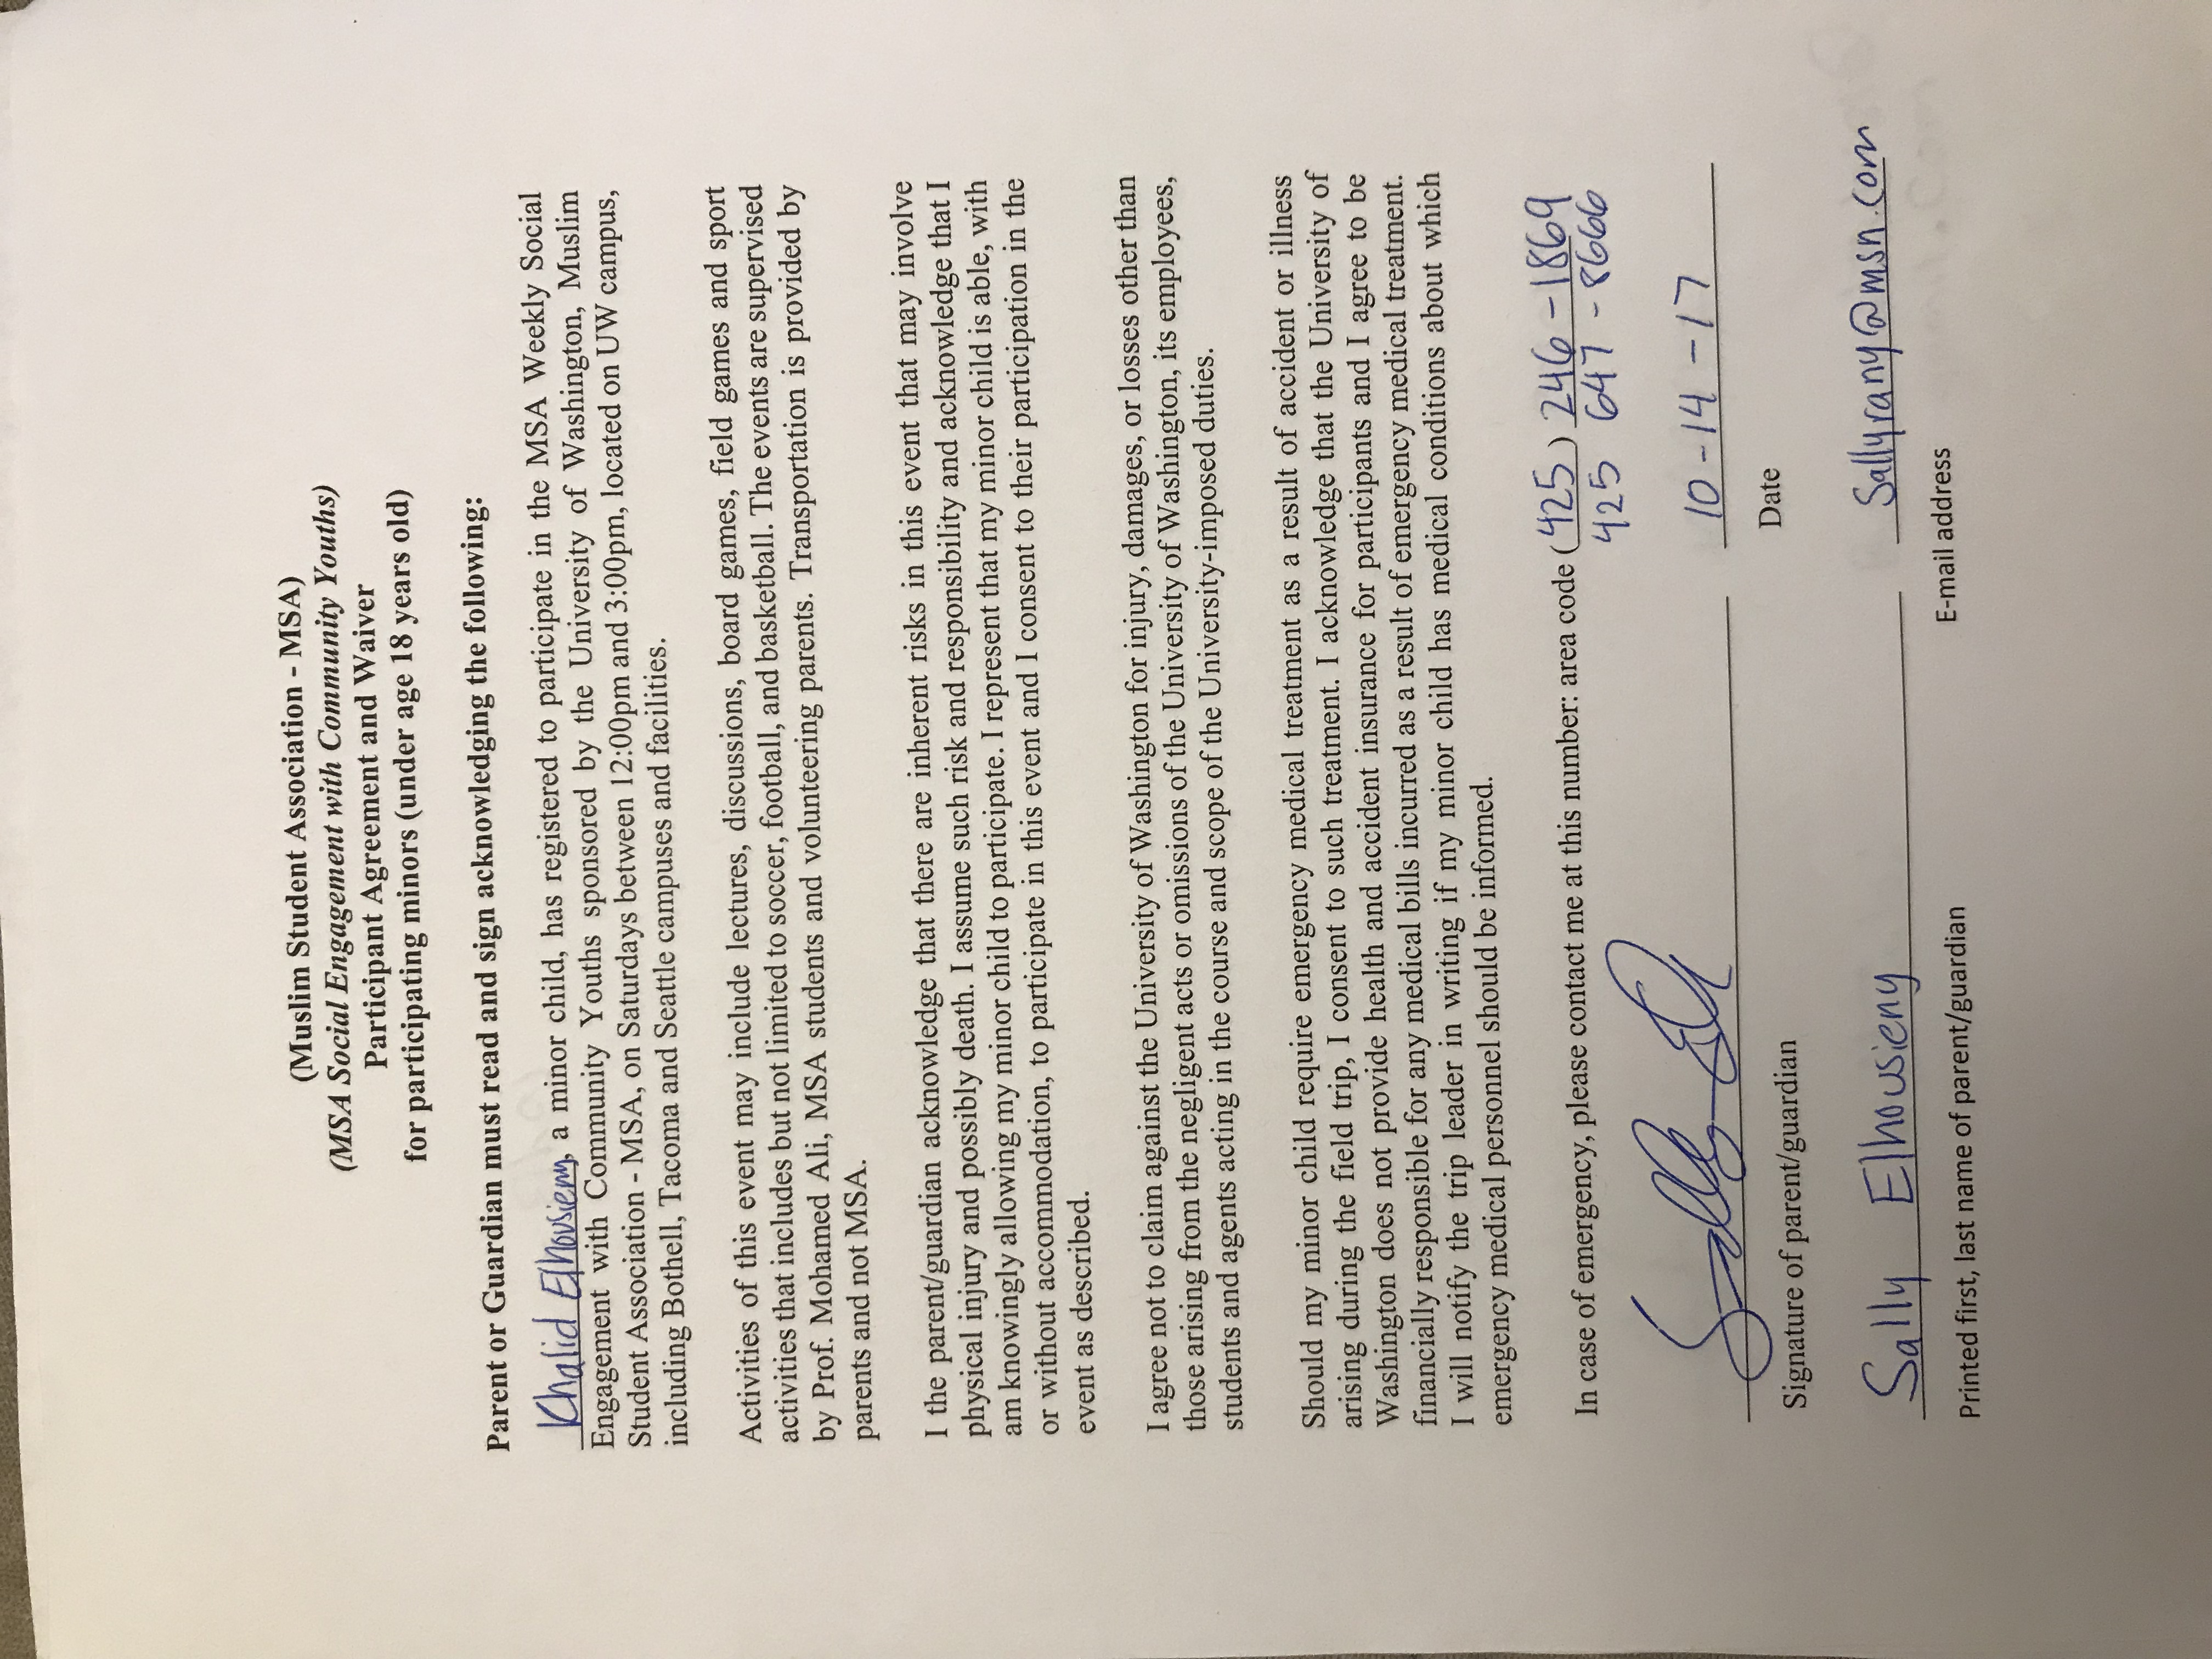 (Muslim Student Association - MSA)
(MSA Social Engagement with Community Youths)
Participant Agreement and Waiver
for participating minors (under age 18 years old)
Parent or Guardian must read and sign acknowledging the following:
Khalid Elhousieny, a minor child, has registered to participate in the MSA Weekly Social
Engagement with Community Youths sponsored by the University of Washington, Muslim
Student Association - MSA, on Saturdays between 12:00pm and 3:00pm, located on UW campus,
including Bothell, Tacoma and Seattle campuses and facilities.
Activities of this event may include lectures, discussions, board games, field games and sport
activities that includes but not limited to soccer, football, and basketball. The events are supervised
by Prof. Mohamed Ali, MSA students and volunteering parents. Transportation is provided by
parents and not MSA.
I the parent/guardian acknowledge that there are inherent risks in this event that may involve
physical injury and possibly death. I assume such risk and responsibility and acknowledge that I
am knowingly allowing my minor child to participate. I represent that my minor child is able, with
or without accommodation, to participate in this event and I consent to their participation in the
event as described.
I agree not to claim against the University of Washington for injury, damages, or losses other than
those arising from the negligent acts or omissions of the University of Washington, its employees,
students and agents acting in the course and scope of the University-imposed duties.
Should my minor child require emergency medical treatment as a result of accident or illness
arising during the field trip, I consent to such treatment. I acknowledge that the University of
Washington does not provide health and accident insurance for participants and I agree to be
financially responsible for any medical bills incurred as a result of emergency medical treatment.
I will notify the trip leader in writing if my minor child has medical conditions about which
emergency medical personnel should be informed.
In case of emergency, please contact me at this number: area code (425) 246-1869
425 647-8666
10-14-17
Signature of parent/guardian Date
Sally Elhousieny Sallyrany@msn.com
Printed first, last name of parent/guardian E-mail address